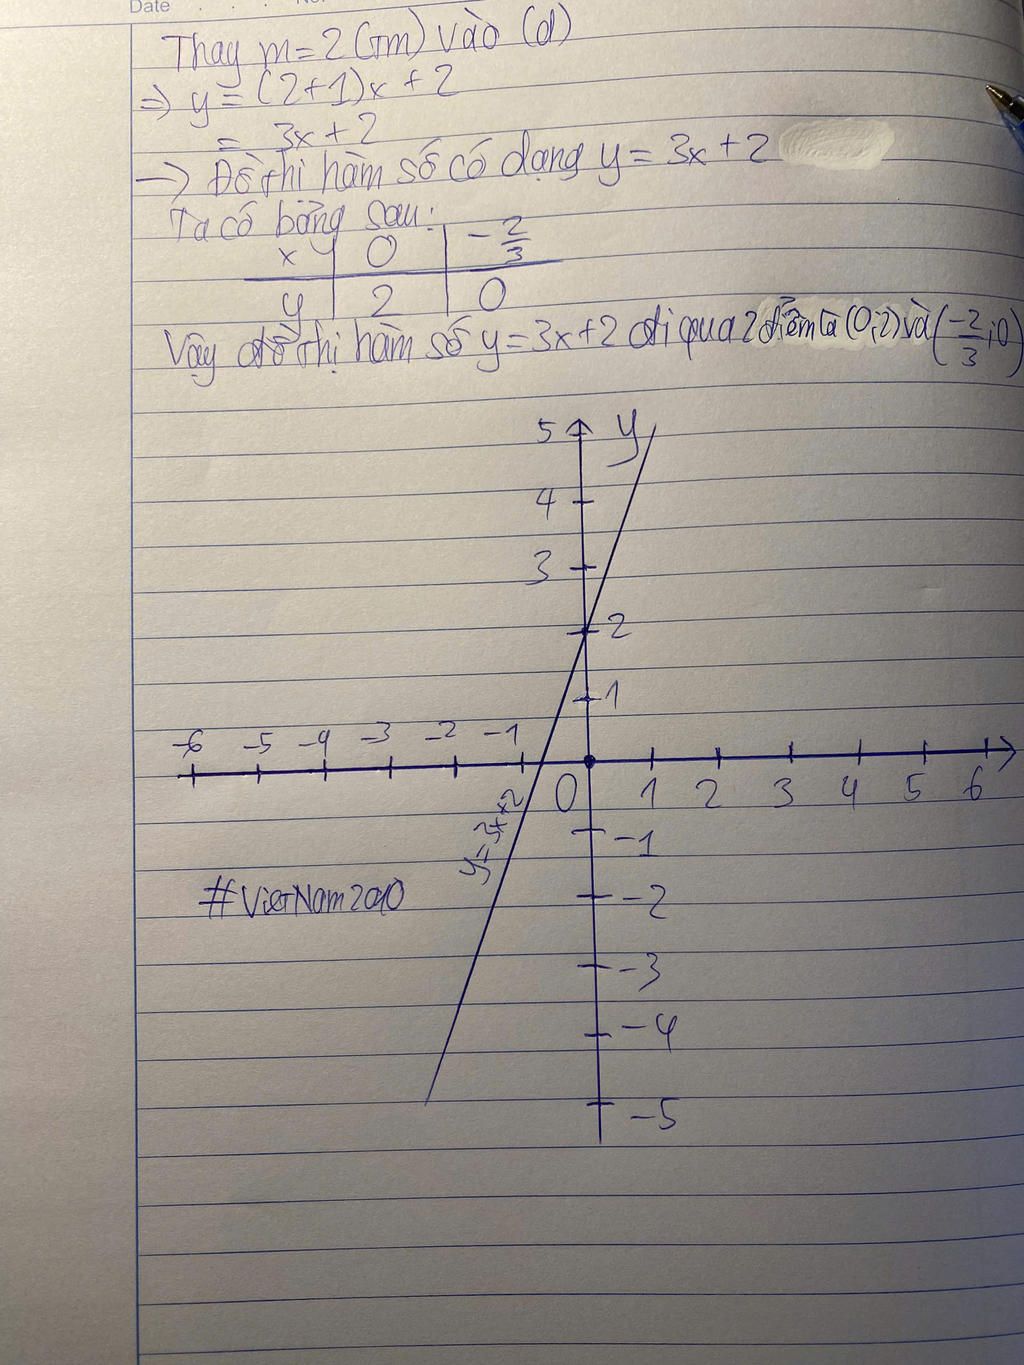 Date
Thay m=2(Tm) vào (d)
=> y=(2+1)x+2
= 3x+2
-> Đồ thị hàm số có dạng y=3x+2
Ta có bảng sau:
x 0 -2/3
y 2 0
Vậy đồ thị hàm số y=3x+2 đi qua 2 điểm là (0;2) và (-2/3;0)
5 y
4
3
2
1
-6 -5 -4 -3 -2 -1
0 1 2 3 4 5 6
y=3x+2
-1
#VietNam2010
-2
-3
-4
-5